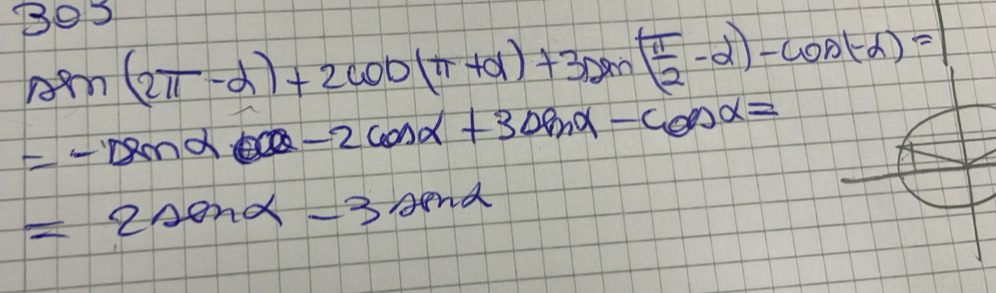 303
sen (2π - α) + 2cos (π + α) + 3sen (π/2 - α) - cos(-α) =
= - sen α - 2 cos α + 3 sen α - cos α =
= 2 sen α - 3 sen α